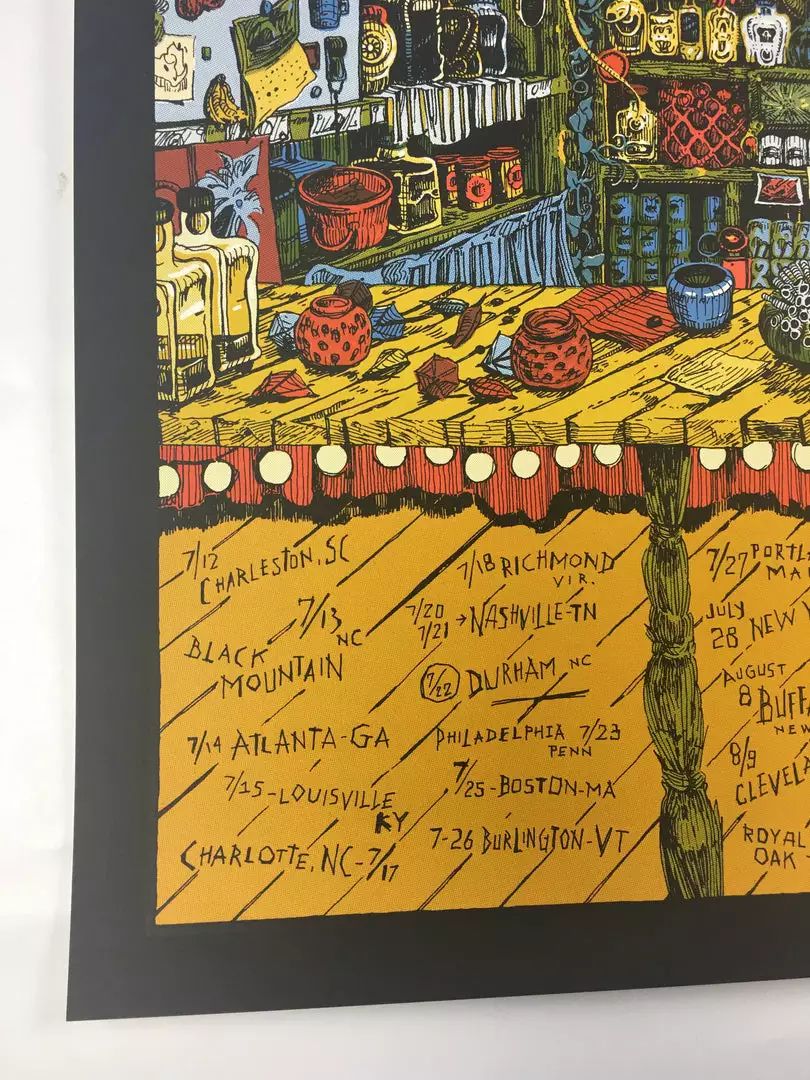 7/12
CHARLESTON, SC
7/13
NC
BLACK
MOUNTAIN
7/14 ATLANTA-GA
7/15-LOUISVILLE
KY
CHARLOTTE, NC-7/17
7/18 RICHMOND
VIR.
7/20
7/21 → NASHVILLE-TN
7/22 DURHAM NC
PHILADELPHIA 7/23
PENN
7/25-BOSTON-MA
7-26 BURLINGTON-VT
7/27
JULY
28 NEW
AUGUST
8
NEW
8/9
ROYAL
OAK -